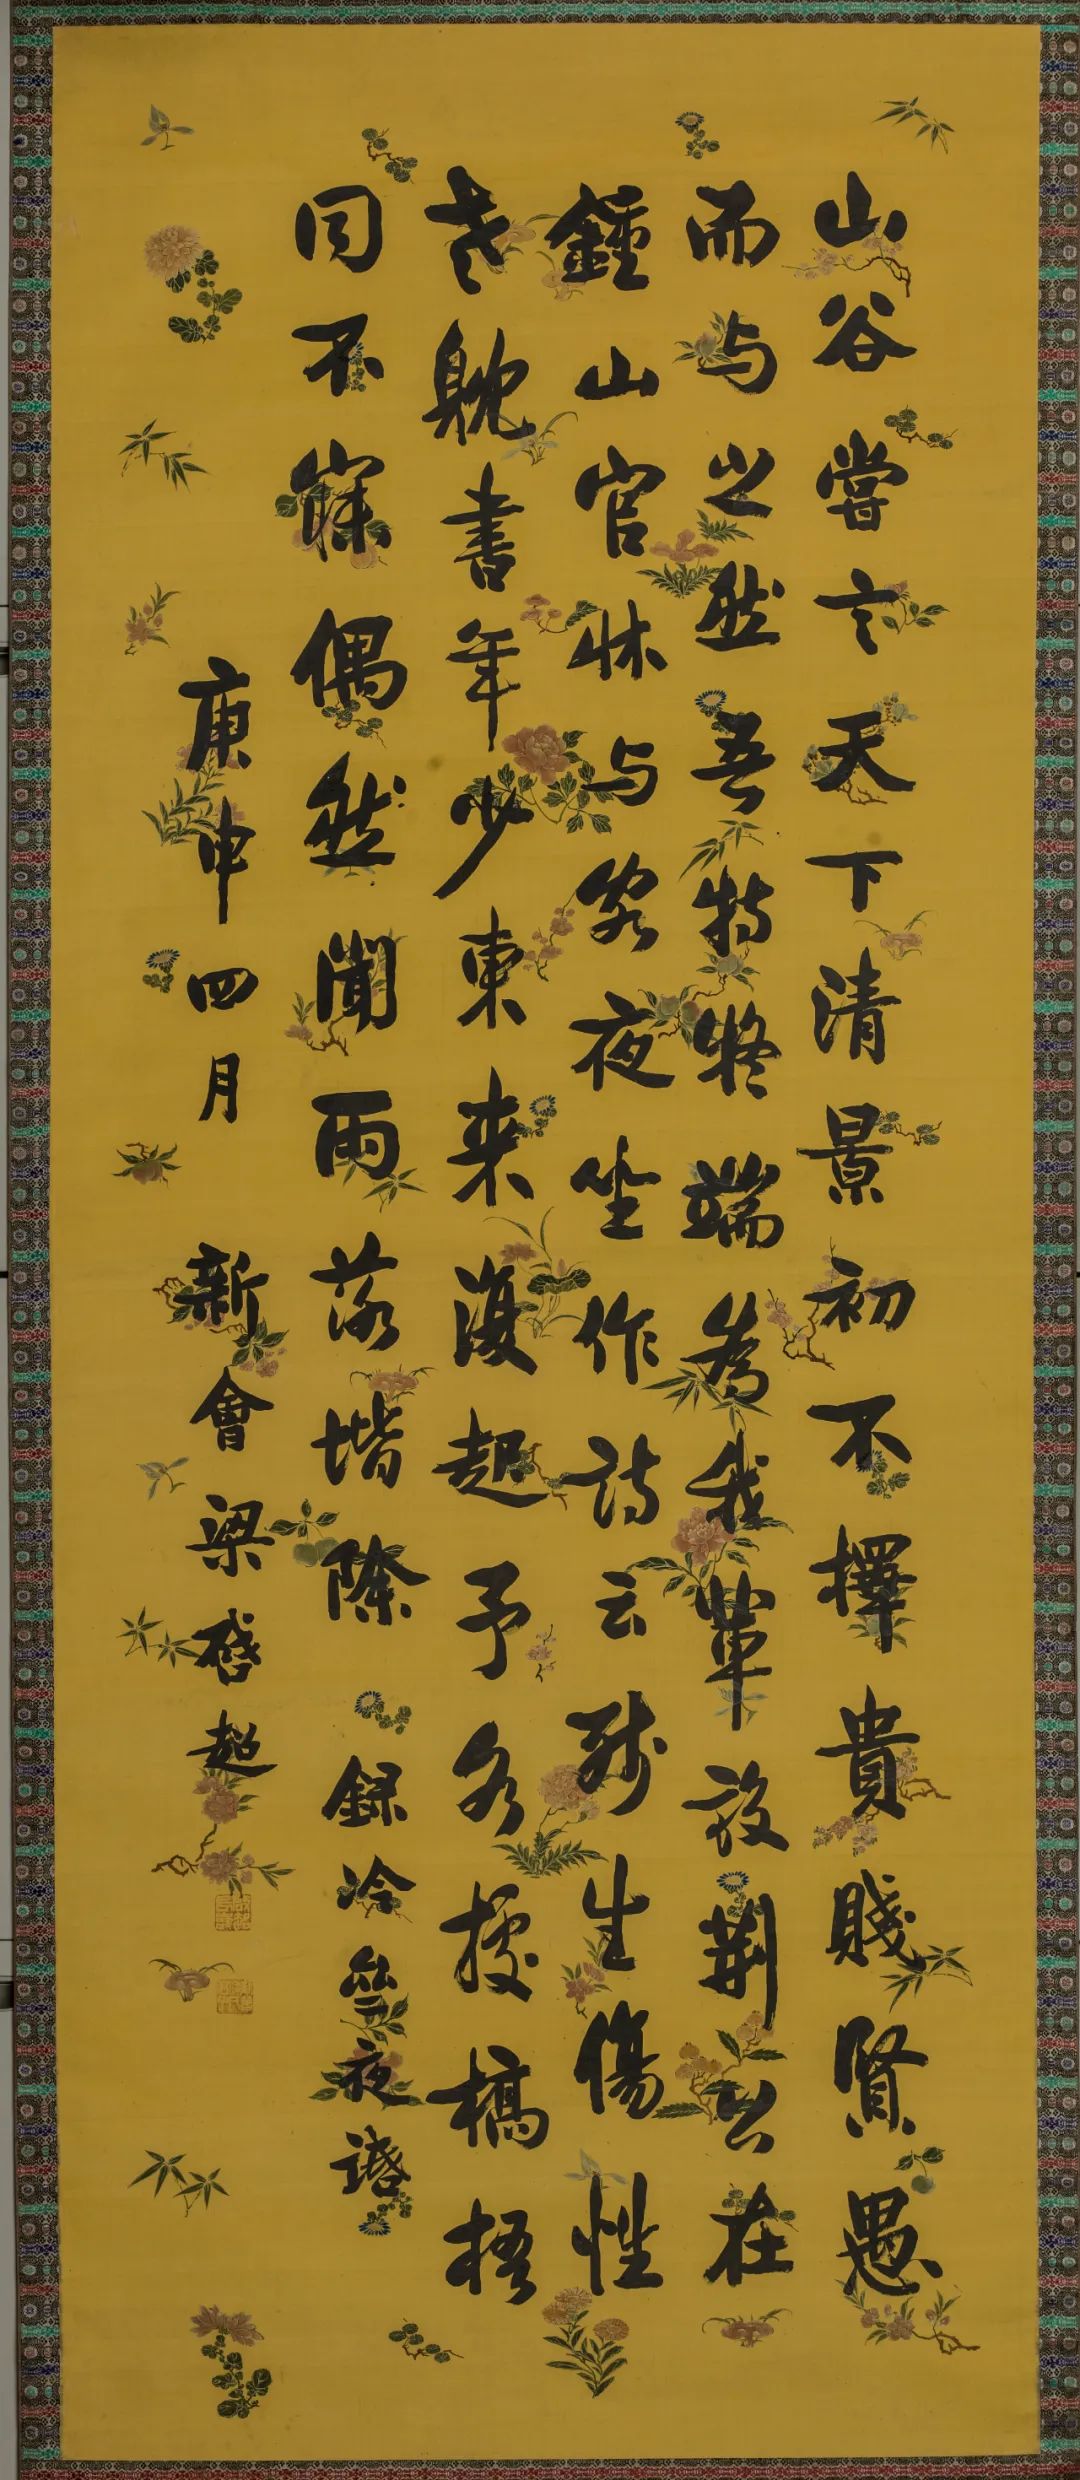 山谷嘗言天下清景初不擇貴賤賢愚
而与之然吾特疑端為我輩設荊公在
鍾山官牀与客夜坐作詩云殘生傷性
老躭書年少東来復起予各據槁梧
同不寐偶然聞雨落堦除 録冷齋夜話
庚申四月 新會梁啓超